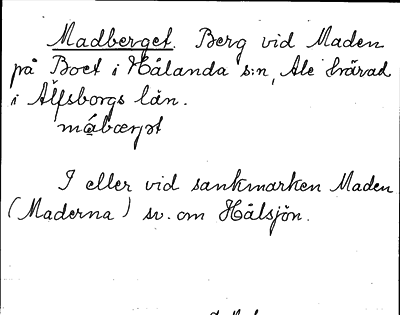 Madberget. Berg vid Maden
på Boet i Hålanda s:n, Ale härad
i Älfsborgs län.
mábærjət
I eller vid sankmarken Maden
(Maderna) sv. om Hålsjön.